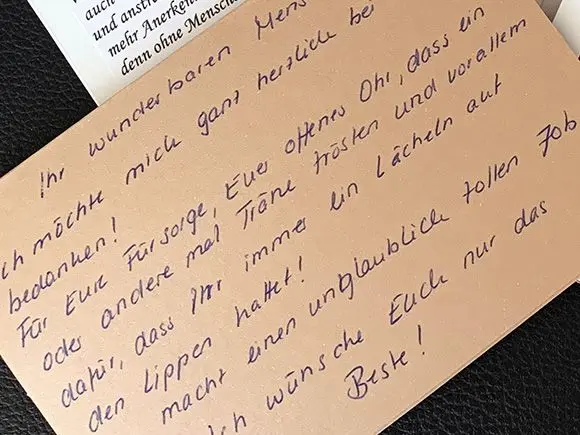 auch
und anstr
mehr Anerken
denn ohne Mensch
Ihr wunderbaren Mens
ich möchte mich ganz herzlich bei
bedanken!
Für Eure Fürsorge, Euer offenes Ohr, dass ein
oder andere mal Träne trösten und vorallem
dafür, dass Ihr immer ein Lächeln auf
den Lippen hattet!
macht einen unglaublich tollen Job
Ich wünsche Euch nur das
Beste!